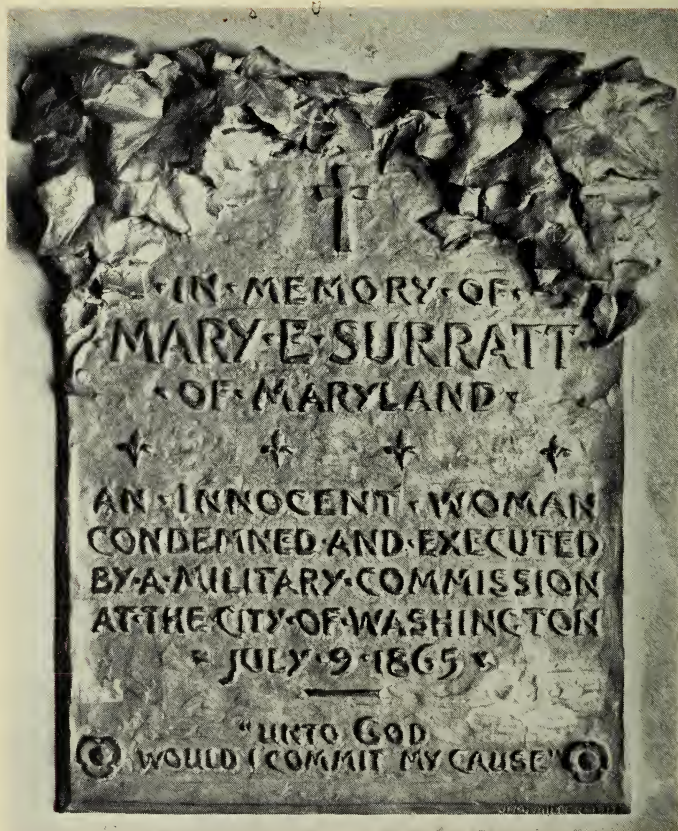 ·IN·MEMORY·OF·
MARY·E·SURRATT
·OF·MARYLAND·
AN·INNOCENT·WOMAN
CONDEMNED·AND·EXECUTED
BY·A·MILITARY·COMMISSION
AT·THE·CITY·OF·WASHINGTON
·JULY·9·1865·
"UNTO GOD
WOULD I COMMIT MY CAUSE"